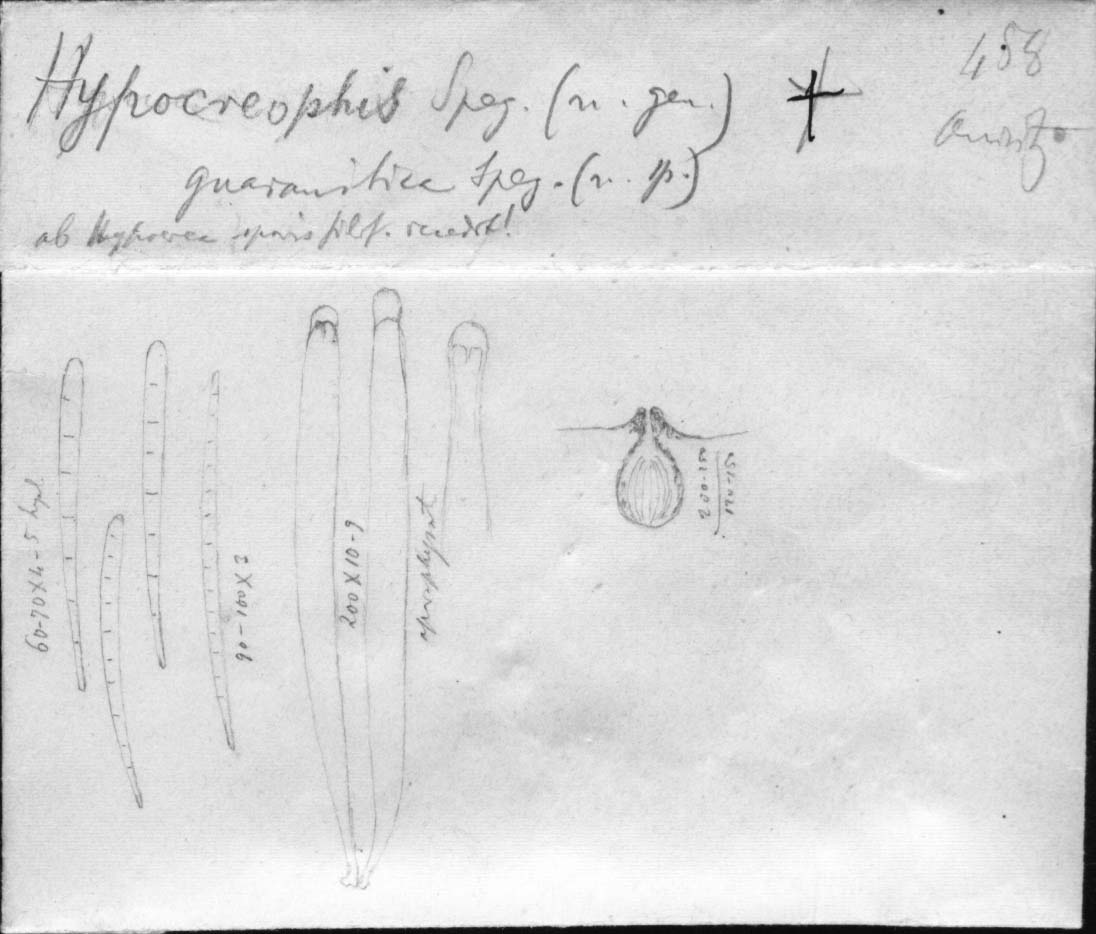 Hypocreophis Speg. (n. gen.)
guaranitica Speg. (n. sp.)
ab Hypocrea sporis filif. recedit!
458
60-70X4-5 hyal
90-100X3
200X10-9
aparaphysat
200-250